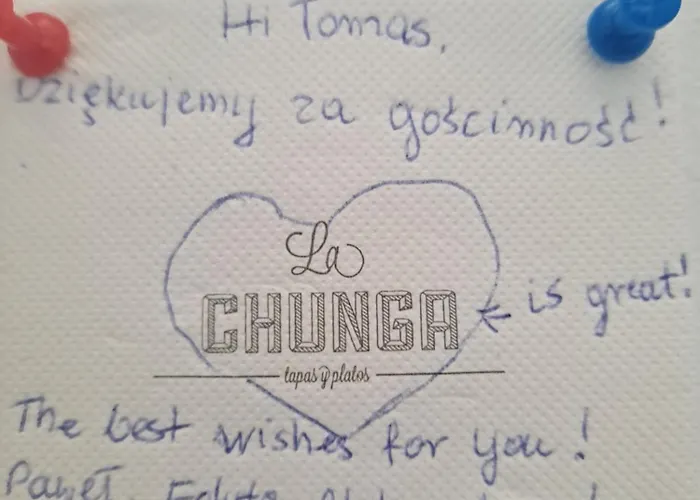 Hi Tomas,
Dziękujemy za gościnność!
La
CHUNGA
is great!
tapas y platos
The best wishes for you!
Paweł,